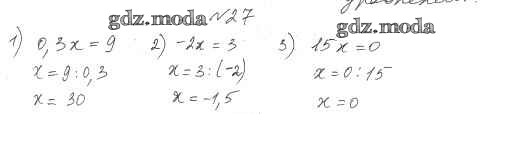 gdz.moda №27
gdz.moda
1) 0,3x = 9
x = 9 : 0,3
x = 30
2) -2x = 3
x = 3 : (-2)
x = -1,5
3) 15x = 0
x = 0 : 15
x = 0